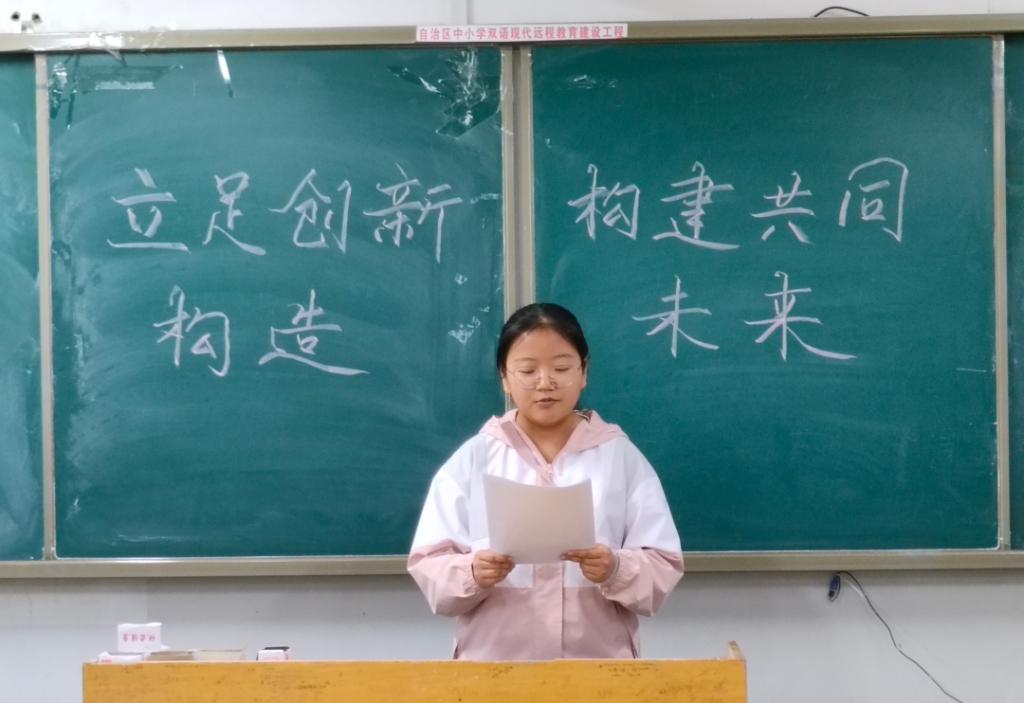 自治区中小学双语现代远程教育建设工程
立足创新
构造
构建共同
未来